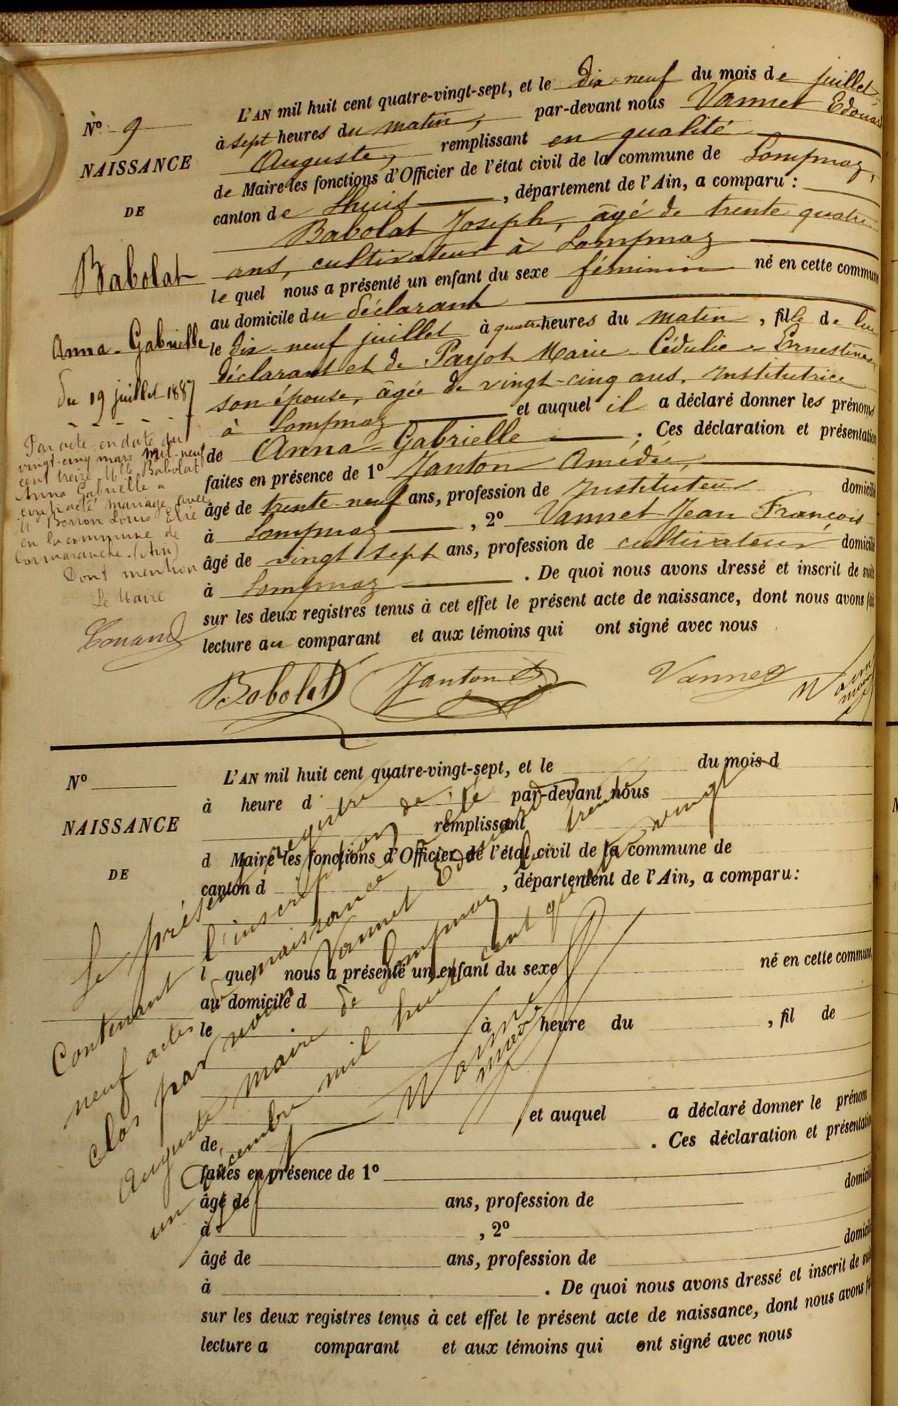 N° 9
NAISSANCE
DE
Babolat
Anna-Gabrielle
du 19 juillet 1887
Par acte en date du
vingt-cinq mars mil neuf
cent treize Mlle Babolat
Anna Gabrielle a
contracté mariage avec
M. Louis
en la commune de
Cormaranche (Ain)
Dont mention
Le Maire
L'AN mil huit cent quatre-vingt-sept, et le dix-neuf du mois de juillet,
à sept heures du matin, par-devant nous Vannet Edouard
Auguste, remplissant en qualité
de Maire les fonctions d'Officier de l'état civil de la commune de Lompnaz,
canton de Lhuis, département de l'Ain, a comparu :
Babolat Joseph, âgé de trente quatre
ans, cultivateur à Lompnaz
le quel nous a présenté un enfant du sexe féminin né en cette commune
au domicile du déclarant
le dix-neuf juillet à quatre heures du matin, fille de lui
déclarant et de Marie Ernestine
son épouse, âgée de vingt-cinq ans, Institutrice
à Lompnaz et auquel il a déclaré donner les prénoms
de Anna-Gabrielle. Ces déclaration et présentation
faites en présence de 1° Janton Amédée,
âgé de trente-neuf ans, profession de Instituteur domicilié
à Lompnaz, 2° Vannet Jean François
âgé de vingt sept ans, profession de cultivateur domicilié
à Lompnaz. De quoi nous avons dressé et inscrit de suite
sur les deux registres tenus à cet effet le présent acte de naissance, dont nous avons fait
lecture au comparant et aux témoins qui ont signé avec nous
Babolat Janton Vannet
N°
NAISSANCE
DE
L'AN mil huit cent quatre-vingt-sept, et le du mois d
à heure d par-devant nous
remplissant
d Maire les fonctions d'Officier de l'état civil de la commune de
canton d , département de l'Ain, a comparu :
l quel nous a présenté un enfant du sexe né en cette commune
au domicile d
le à heure du , fil de
et auquel a déclaré donner le prénom
de . Ces déclaration et présentation
faites en présence de 1°
âgé de ans, profession de domicilié
à , 2°
âgé de ans, profession de domicilié
à . De quoi nous avons dressé et inscrit de suite
sur les deux registres tenus à cet effet le présent acte de naissance, dont nous avons fait
lecture a comparant et aux témoins qui ont signé avec nous
Le présent registre
Contenant l'inscription de
neuf actes de naissance a été
clos par nous Vannet Edouard
Auguste Maire de Lompnaz le trente
un décembre mil huit cent quatre vingt
sept